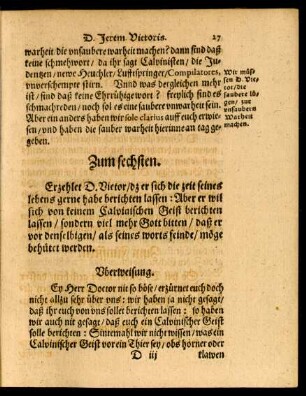 D. Jerem. Victoris. 27
warheit die vnsaubere warheit machen? dann sind daß
keine schmehwort / da ihr sagt Calvinisten / die Ju-
dentzen / newe Heuchler / Lufftspringer / Compulatores,
vnverschempte stirn. Vnnd was dergleichen mehr
ist / sind daß keine Ehrrührige wort? freylich sind es
schmachreden / noch sol es eine saubere vnwarheit sein.
Aber ein anders haben wir sole clarius auff euch erwie-
sen / vnd haben die sauber warheit hierinne an tag ge-
geben.
Wir müs-
sen D. Vic-
tor / die
saubere lü-
gen / zur
vnsaubern
Warheit
machen.
Zum sechsten.
Erzehlet D. Victor / dz er sich die zeit seines
lebens gerne habe berichten lassen: Aber er wil
sich von keinem Calvinischen Geist berichten
lassen / sondern viel mehr Gott bitten / daß er
vor denselbigen / als seines worts feinde / möge
behütet werden.
Vberweisung.
Ey Herr Doctor nit so böse / erzürnet euch doch
nicht allzu sehr über vns: wir haben ja nicht gesagt /
daß ihr euch von vns sollet berichten lassen: so haben
wir auch nit gesagt / daß euch ein Calvinischer Geist
solle berichten: Sintemahl wir nicht wissen / was ein
Calvinischer Geist vor ein Thier sey / obs hörner oder
D iij klawen